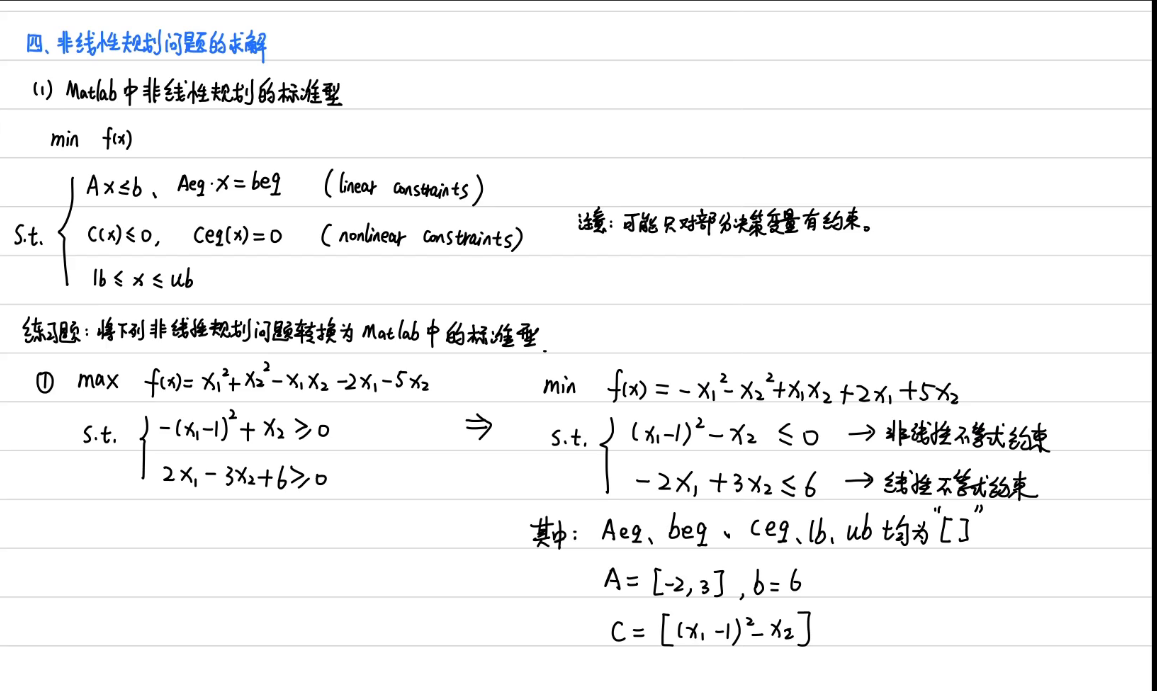 四、非线性规划问题的求解
(1) Matlab中非线性规划的标准型
min f(x)
s.t. { Ax≤b、Aeq·x=beq (linear constraints)
C(x)≤0, Ceq(x)=0 (nonlinear constraints)
lb≤x≤ub
注意:可能只对部分决策变量有约束。
练习题:将下列非线性规划问题转换为Matlab中的标准型.
① max f(x)=x₁²+x₂²-x₁x₂-2x₁-5x₂
s.t. { -(x₁-1)²+x₂≥0
2x₁-3x₂+6≥0
⇒
min f(x)=-x₁²-x₂²+x₁x₂+2x₁+5x₂
s.t. { (x₁-1)²-x₂≤0 →非线性不等式约束
-2x₁+3x₂≤6 →线性不等式约束
其中: Aeq、beq、ceq、lb、ub均为“[]”
A=[-2,3],b=6
C=[(x₁-1)²-x₂]